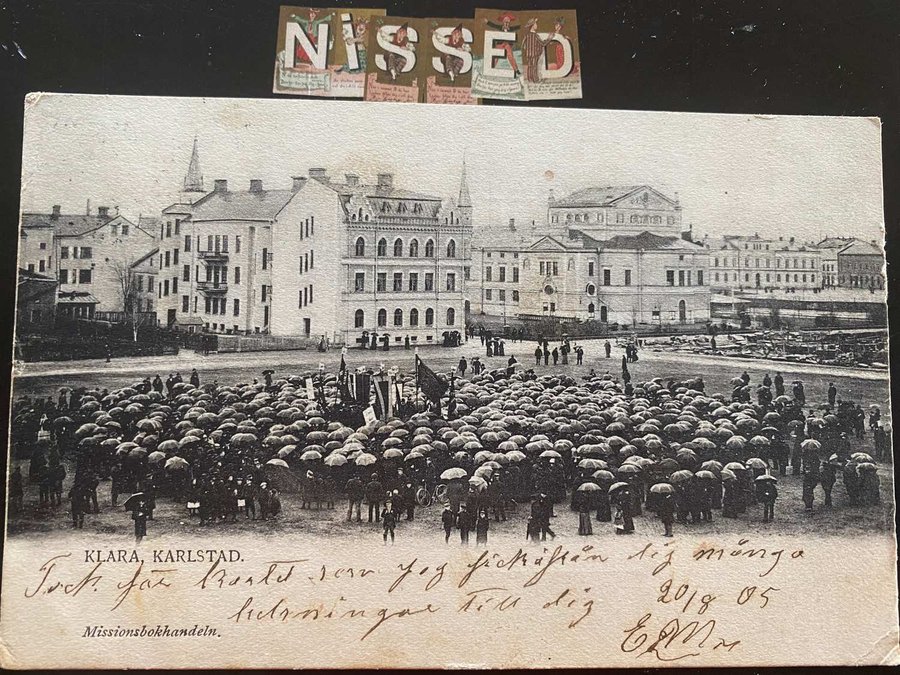 NiSSED
KLARA, KARLSTAD.
Tack för kortet som jag fick ifrån dig många
helsningar till dig 20/8 05
Missionsbokhandeln.